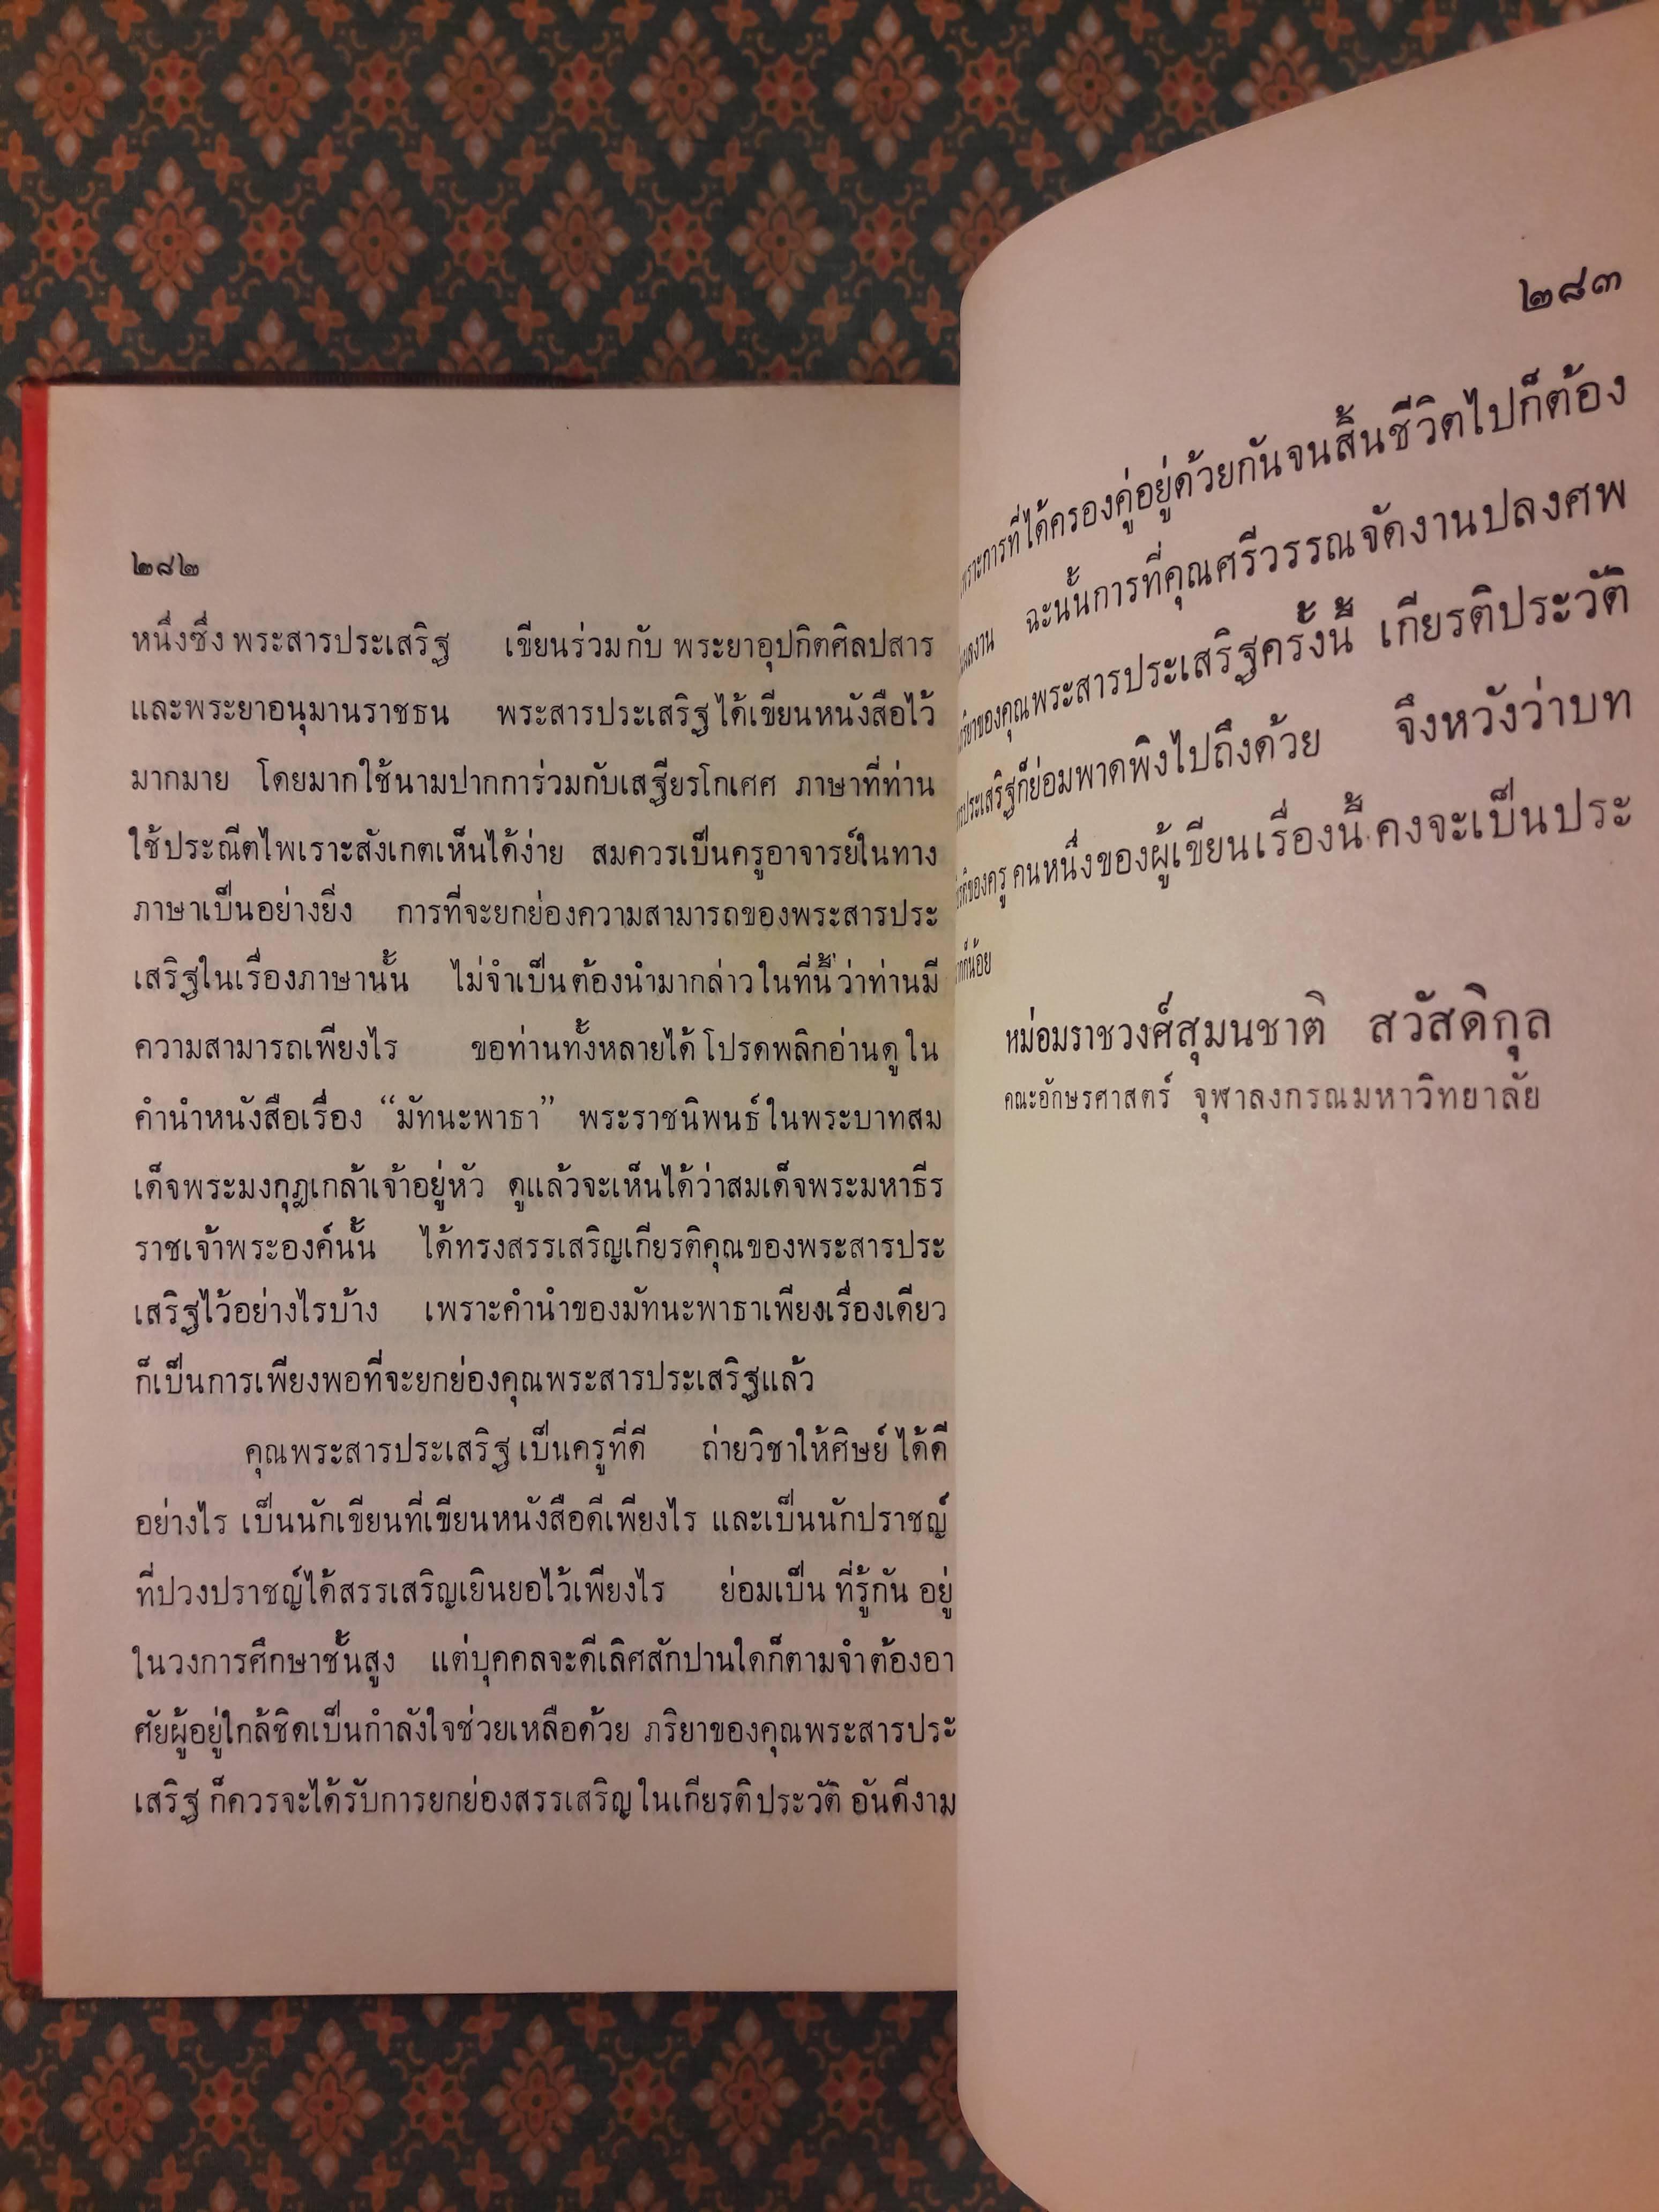 ๒๘๒
หนึ่งซึ่ง พระสารประเสริฐ เขียนร่วมกับ พระยาอุปกิตศิลปสาร
และพระยาอนุมานราชธน พระสารประเสริฐ ได้เขียนหนังสือไว้
มากมาย โดยมากใช้นามปากการ่วมกับเสฐียรโกเศศ ภาษาที่ท่าน
ใช้ประณีตไพเราะสังเกตเห็นได้ง่าย สมควรเป็นครูอาจารย์ในทาง
ภาษาเป็นอย่างยิ่ง การที่จะยกย่องความสามารถของพระสารประ
เสริฐในเรื่องภาษานั้น ไม่จำเป็นต้องนำมากล่าวในที่นี้ ว่าท่านมี
ความสามารถเพียงไร ขอท่านทั้งหลายได้ โปรดพลิกอ่านดู ใน
คำนำหนังสือเรื่อง “มัทนะพาธา” พระราชนิพนธ์ ในพระบาทสม
เด็จพระมงกุฎเกล้าเจ้าอยู่หัว ดูแล้วจะเห็นได้ว่าสมเด็จพระมหาธีร
ราชเจ้าพระองค์นั้น ได้ทรงสรรเสริญเกียรติคุณของพระสารประ
เสริฐไว้อย่างไรบ้าง เพราะคำนำของมัทนะพาธาเพียงเรื่องเดียว
ก็เป็นการเพียงพอที่จะยกย่องคุณพระสารประเสริฐแล้ว
คุณพระสารประเสริฐ เป็นครูที่ดี ถ่ายวิชาให้ศิษย์ ได้ดี
อย่างไร เป็นนักเขียนที่เขียนหนังสือดีเพียงไร และเป็นนักปราชญ์
ที่ปวงปราชญ์ได้สรรเสริญเยินยอไว้เพียงไร ย่อมเป็น ที่รู้กัน อยู่
ในวงการศึกษาชั้นสูง แต่บุคคลจะดีเลิศสักปานใดก็ตามจำต้องอา
ศัยผู้อยู่ใกล้ชิดเป็นกำลังใจช่วยเหลือด้วย ภริยาของคุณพระสารประ
เสริฐ ก็ควรจะได้รับการยกย่องสรรเสริญ ในเกียรติ ประวัติ อันดีงาม
๒๘๓
เพราะการที่ได้ครองคู่อยู่ด้วยกันจนสิ้นชีวิตไปก็ต้อง
ฉะนั้นการที่คุณศรีวรรณจัดงานปลงศพ
ภริยาของคุณพระสารประเสริฐครั้งนี้ เกียรติประวัติ
ประเสริฐก็ย่อมพาดพิงไปถึงด้วย จึงหวังว่าบท
ของครู คนหนึ่งของผู้เขียนเรื่องนี้ คงจะเป็นประ
หม่อมราชวงศ์สุมนชาติ สวัสดิกุล
คณะอักษรศาสตร์ จุฬาลงกรณมหาวิทยาลัย